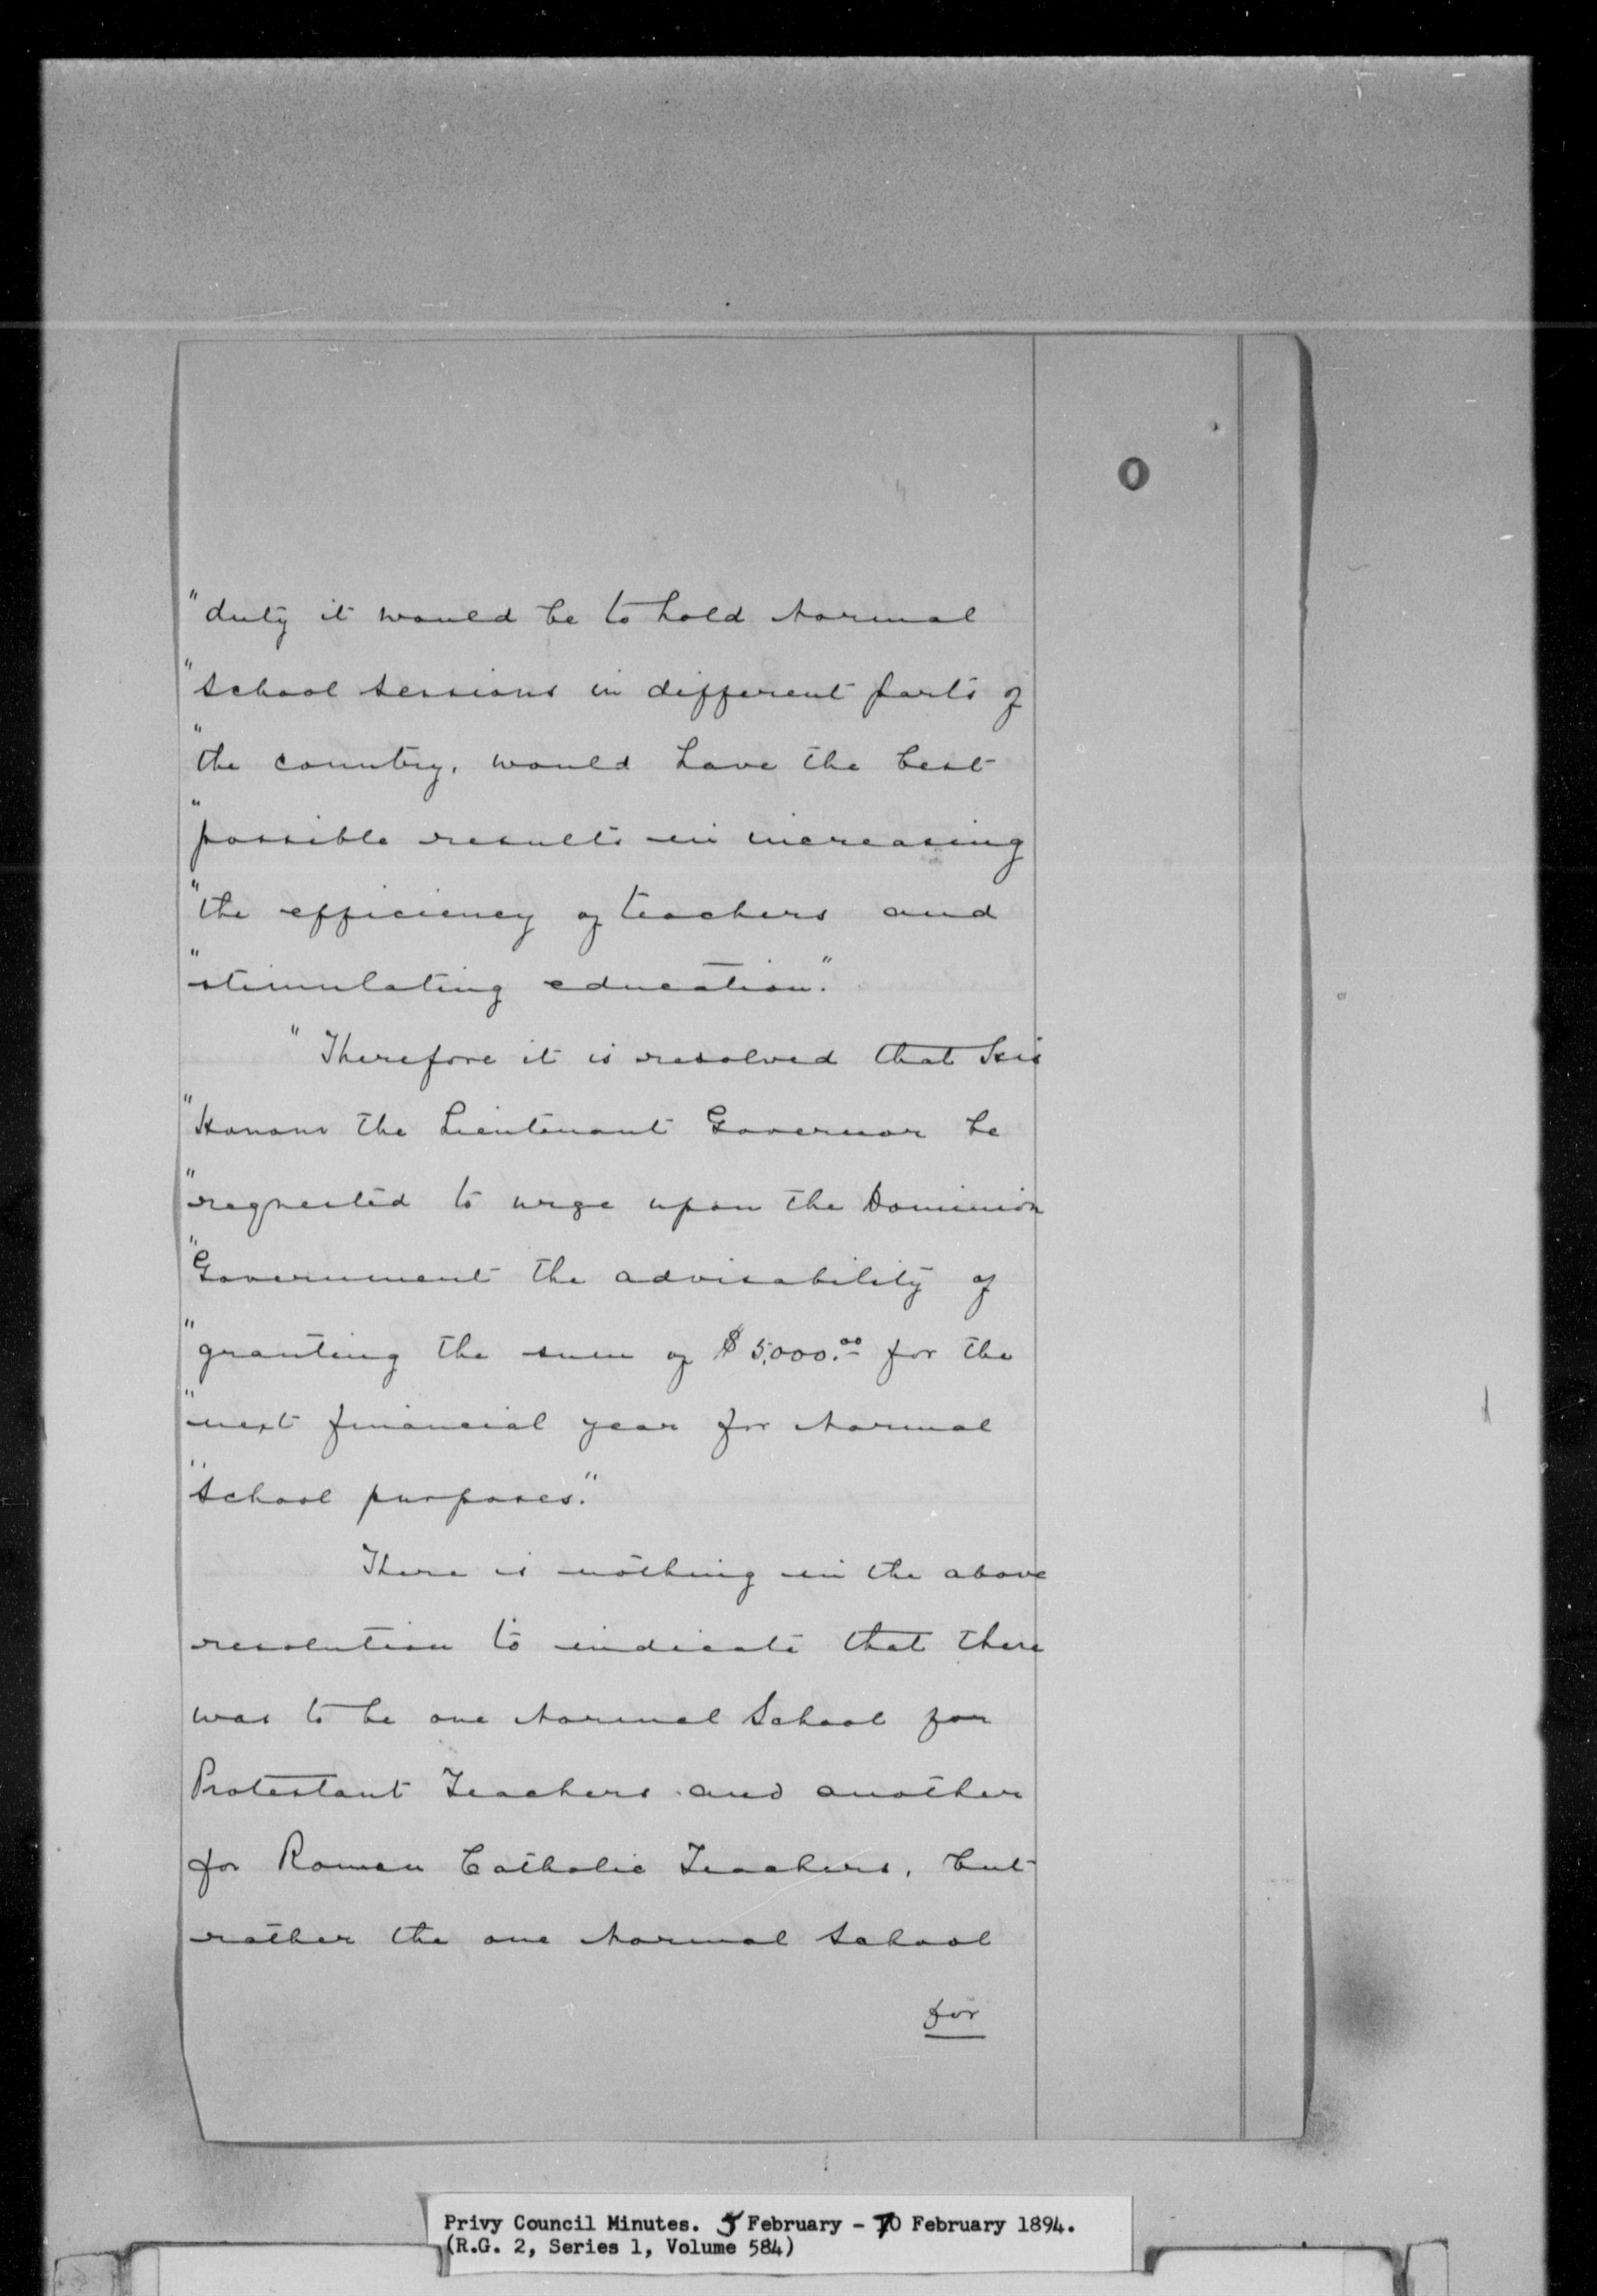 "duty it would be to hold Normal
"School sessions in different parts of
"the country, would have the best
"possible results in increasing
"the efficiency of teachers and
"stimulating education."
"Therefore it is resolved that His
"Honour the Lieutenant Governor be
"requested to urge upon the Dominion
"Government the advisability of
"granting the sum of $5,000.00 for the
"next financial year for Normal
"School purposes."
There is nothing in the above
resolution to indicate that there
was to be one Normal School for
Protestant Teachers and another
for Roman Catholic Teachers, but
rather the one Normal School
for
Privy Council Minutes. 5 February - 10 February 1894.
(R.G. 2, Series 1, Volume 584)